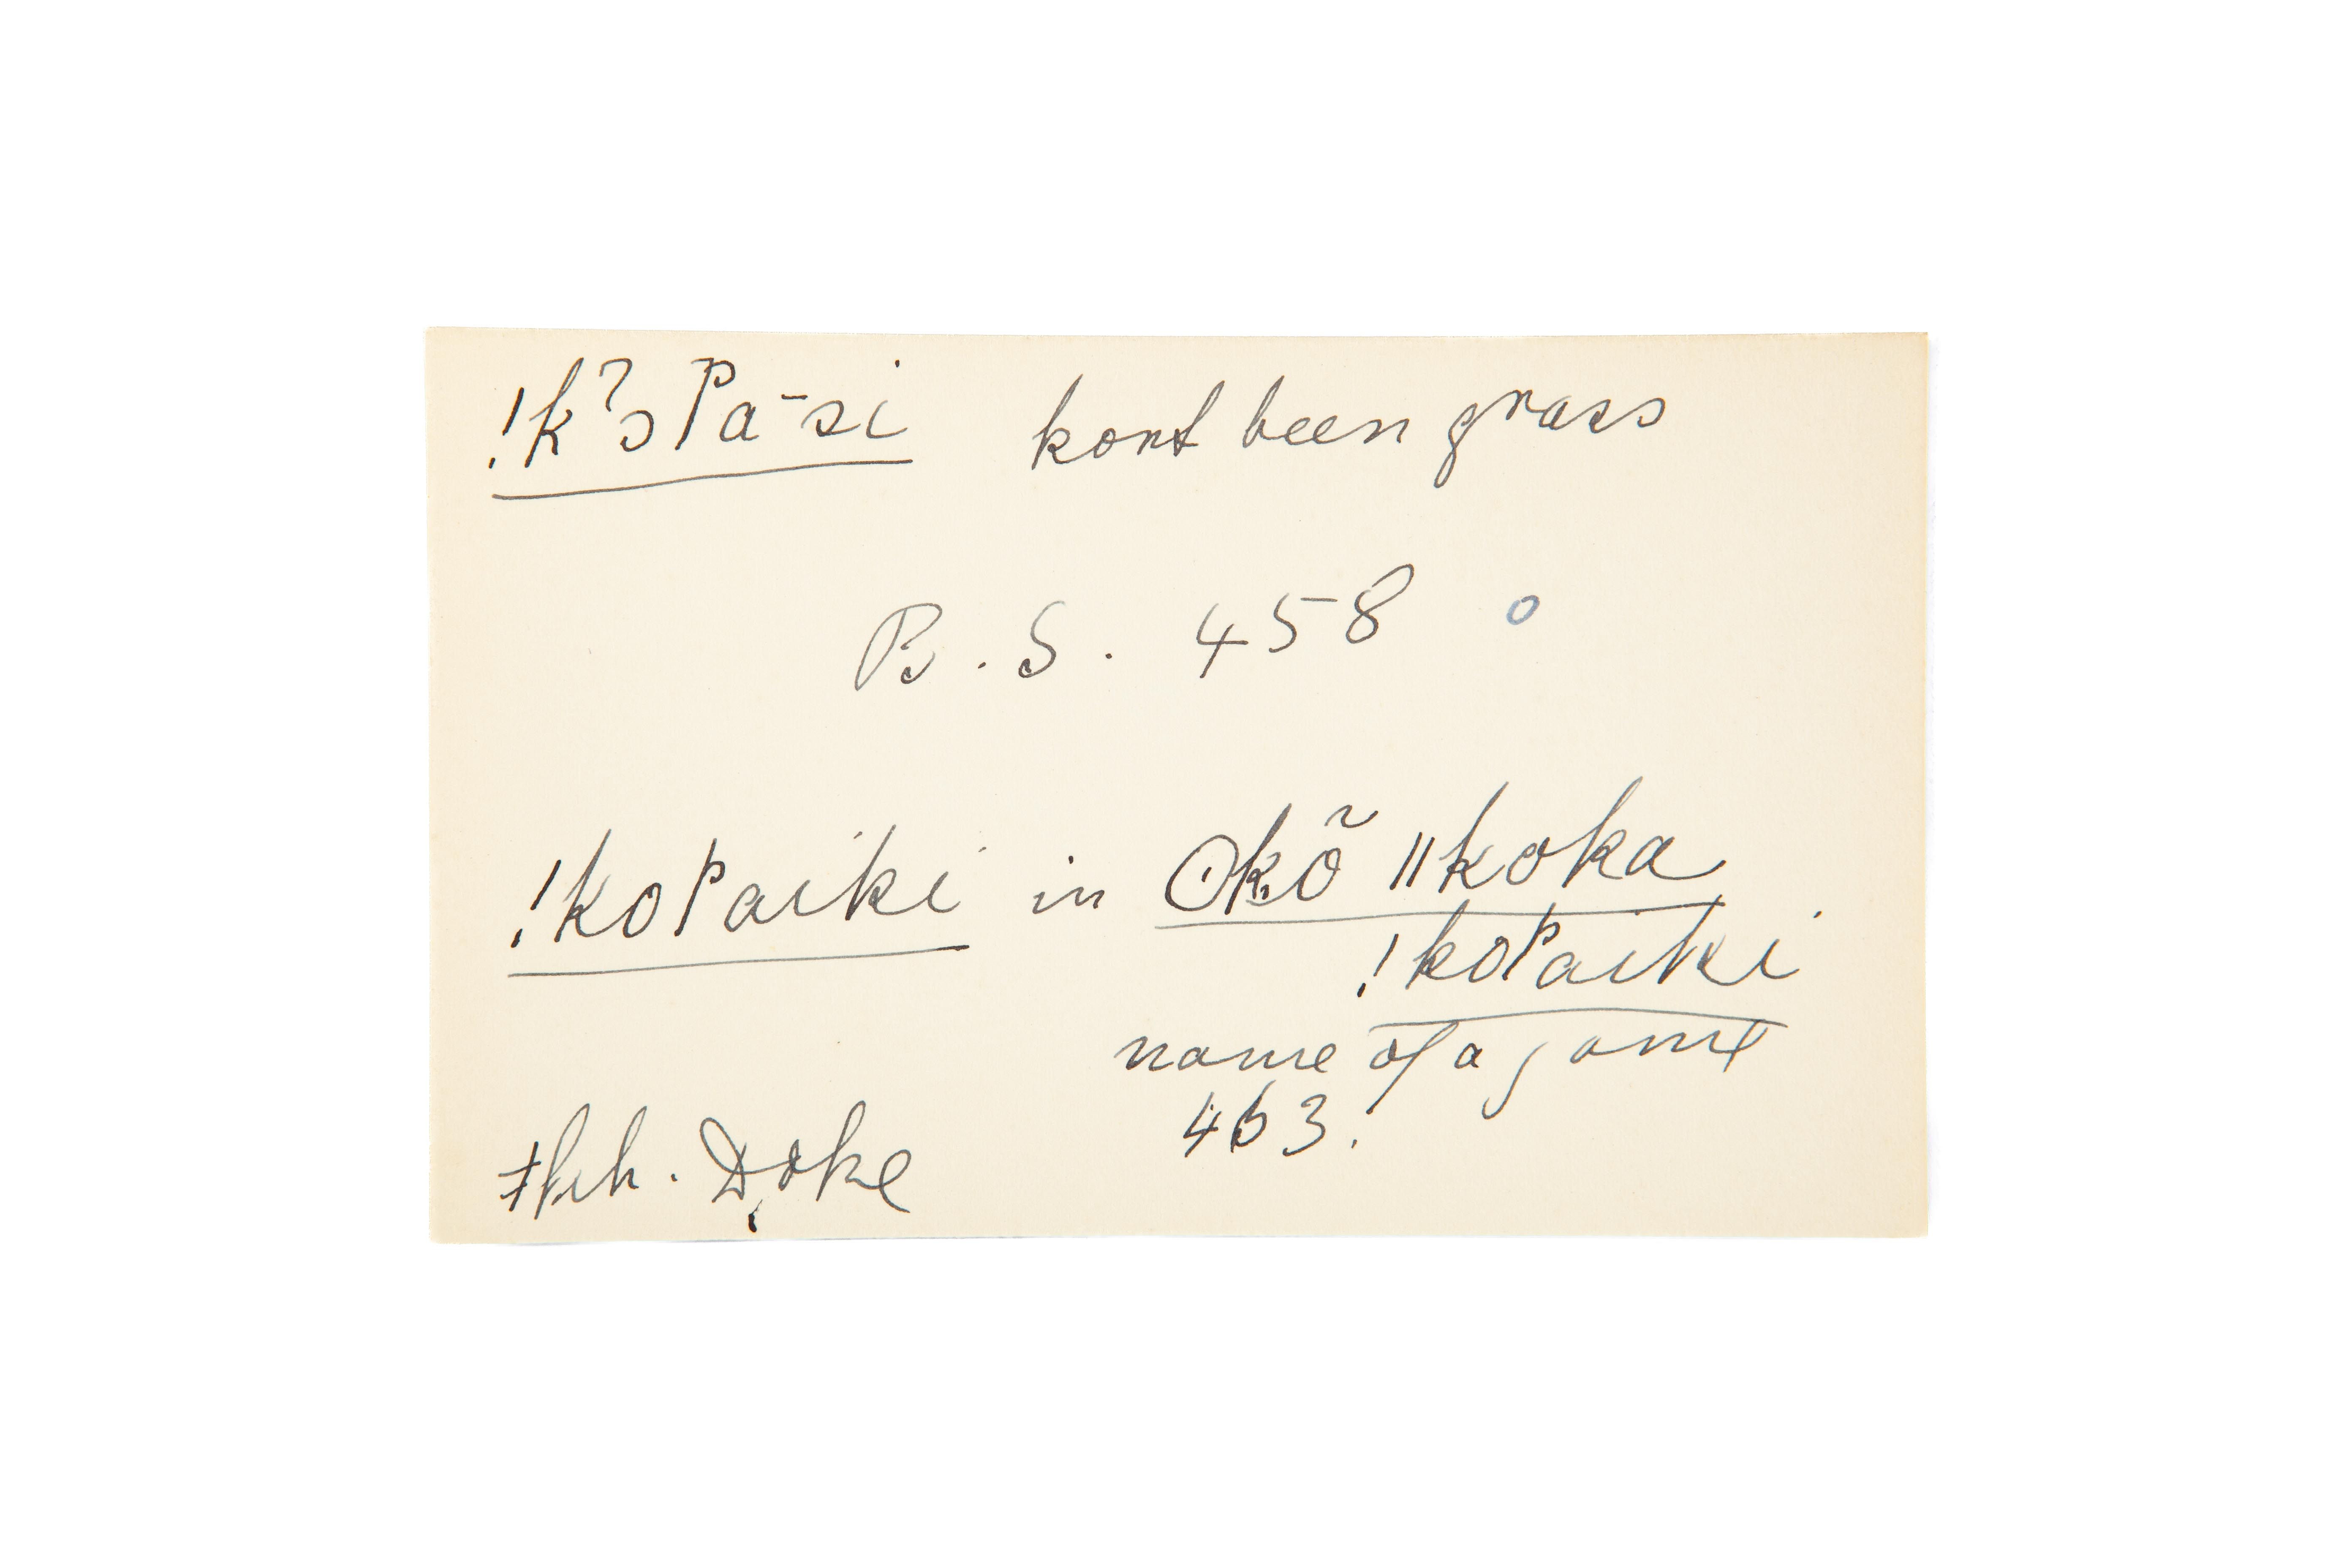 !k ˀɔ ſa-si kort been grass
B. S. 458 o
!koſaiki in ʘkõ ǁkoka
!koſaiki
name of a game
463.
ǂkh. Doke